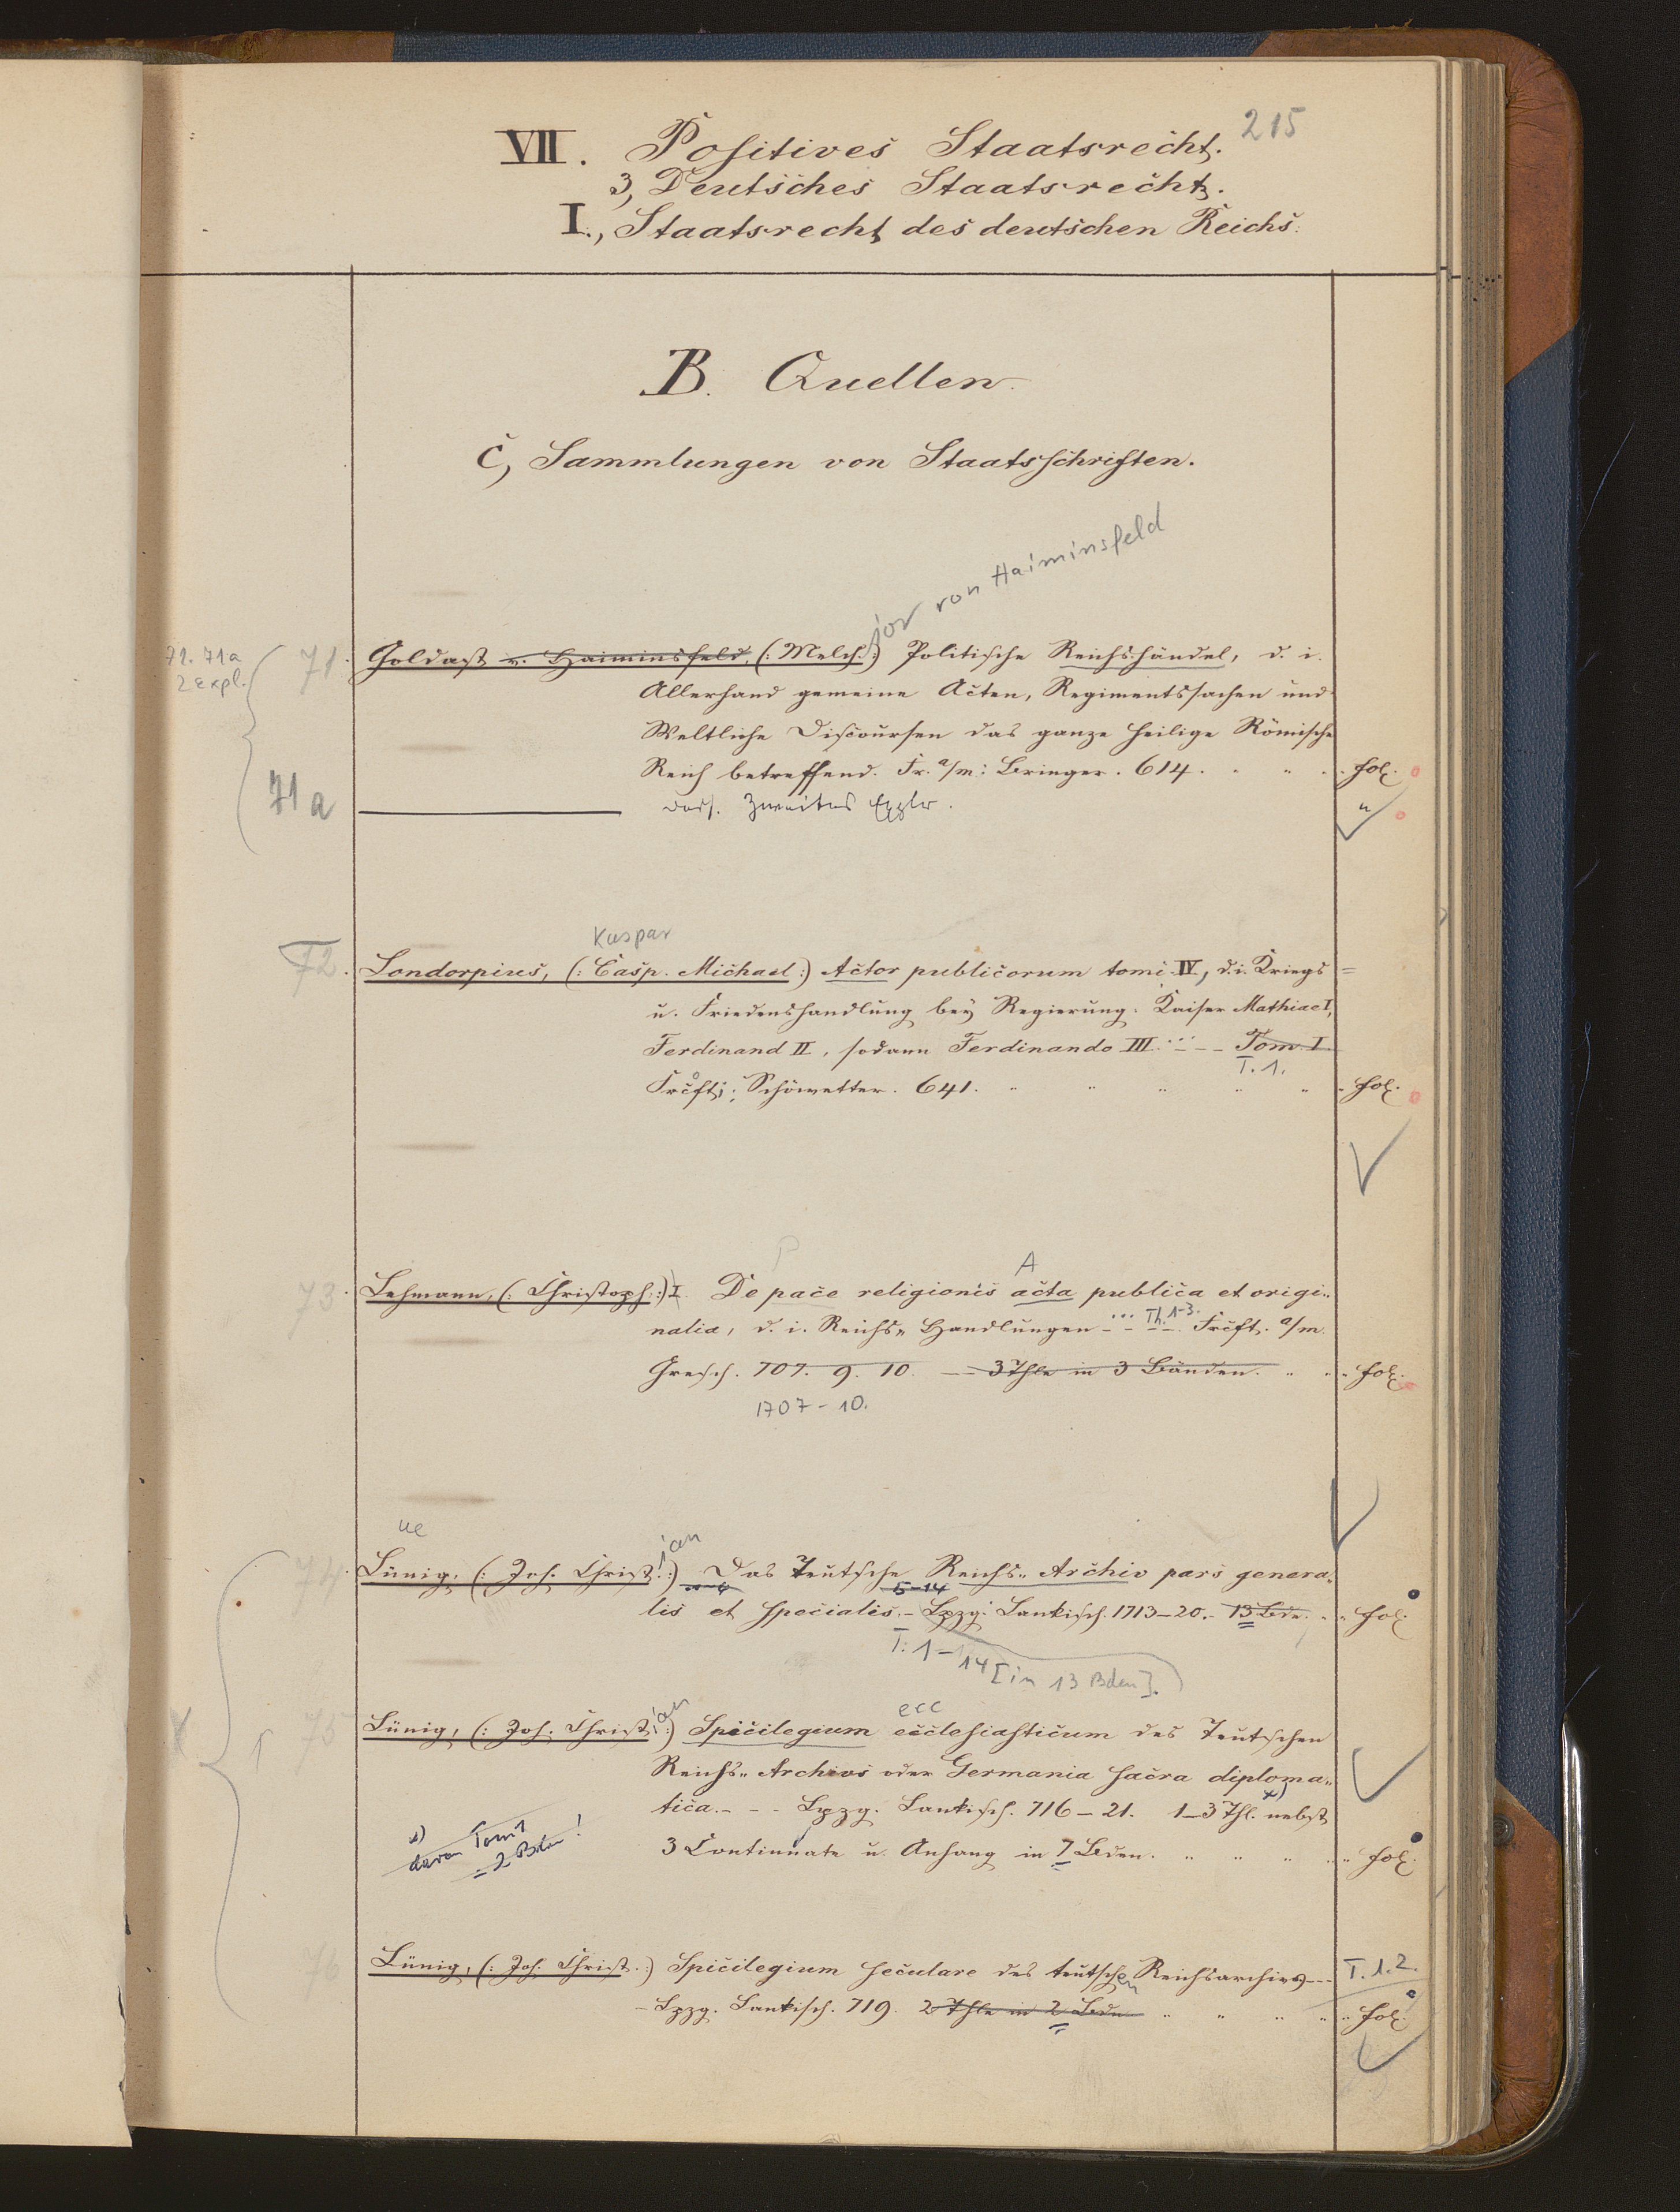 215
VII. Positives Staatsrecht.
3, Deutsches Staatsrecht.
I., Staatsrecht des deutschen Reichs.
B. Quellen.
C, Sammlungen von Staatsschriften.
jor von Haiminsfeld
71. 71a
2 Expl.
71. Goldast v. Haiminsfeld, (: Melch:) Politische Reichshändel, d. i.
Allerhand gemeine Acten, Regimentssachen und
Weltliche Discoursen das ganze heilige Römische
Reich betreffend. Fr. a/m: Bringer. 614. fol.
71a dass. Zweites Explr. "
Kaspar
72. Londorpius, (: Casp. Michael:) Actor publicorum tomi IV, d. i. Kriegs=
u. Friedenshandlung bey Regierung. Kaiser Mathiae I,
Ferdinand II, sodann Ferdinando III. ... -- Tom I.
T. 1.
Frcft; Schöwetter. 641. fol.
P A
73. Lehmann, (: Christoph:) I. De pace religionis acta publica et origi„
nalia, d. i. Reichs„ Handlungen ... Th. 1-3. Frcft. a/m.
Gresch. 707. 9. 10. — 3 Thle in 3 Bänden. fol.
1707-10.
ue ian
74. Lünig, (: Joh. Christ.:) Das Teutsche Reichs„ Archiv pars genera„
5-14
lis et specialis.- Lpzg. Lankisch. 1713-20. 13 Bde. fol.
T. 1-14 [in 13 Bden].
ian ecc
75 Lünig, (: Joh. Christ:) Spicilegium ecclesiasticum des Teutschen
Reichs„ Archivs oder Germania sacra diploma„
tica. - - - Lpzg. Lankisch. 716-21. 1-3 Thl. x) nebst
x) davon Tom 1
= 2 Bden!
3 Continuate u. Anhang in 7 Bden. fol.
76 Lünig, (: Joh. Christ.:) Spicilegium seculare des teutschen Reichsarchivs --- T. 1.2.
- Lpzg. Lankisch. 719. 2 Thle in 2 Bde fol.